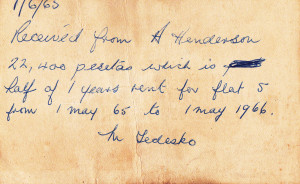 1/6/65
Received from A Henderson
22,400 pesetas which is
half of 1 years rent for flat 5
from 1 may 65 to 1 may 1966.
M Tedesko